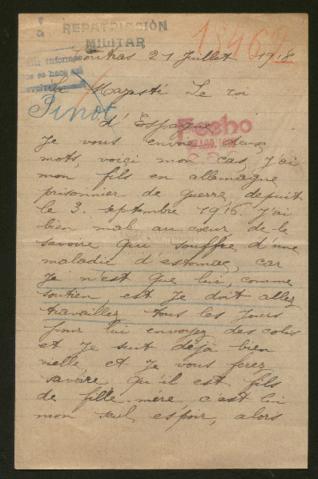 REPATRIACIÓN
MILITAR
18962
Coutras 21 Juillet 1918
Sa Majesté Le roi
Pinot
d'Espagne
Fecho
Je vous envoie deux
mots, voiçi mon cas, J'ai
mon fils en allemagne
prisonnier de guerre, depuit
le 3. septembre 1916. J'ai
bien mal au cœur de le
savoire qui souffre, d'une
maladie d'estomac, car
Je n'est que lui, comme
soutien, est Je doit allez
travaillez tous les Jours
pour lui envoyez des colis
et Je suit déjà bien
vielle et Je vous ferez
savoire, qu'il est fils
de fille-mère, c'est lui
mon seul espoir, alors